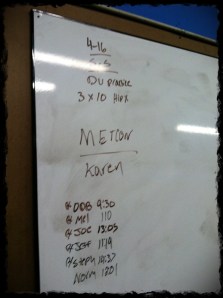 4-16
5-5
DU practice
3 x 10 Hinx
METCON
Karen
DDB 9:30
Mel 110
JOC 13:05
Jeff 11:19
Steph 14:37
Norm 1201